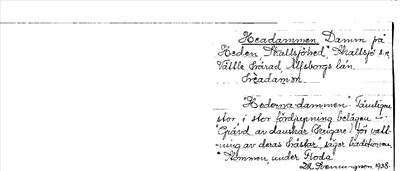 Headammen, Damm på
Heden "Skallsjöhed", Skallsjö s:n,
Vättle härad, Älfsborgs län.
"Hedernadammen". Tämligen
stor, i stor fördjupning belägen –
"Grävd av danskar för vatt-
ning av deras hästar", säger traditionen.
under Floda.
1938.